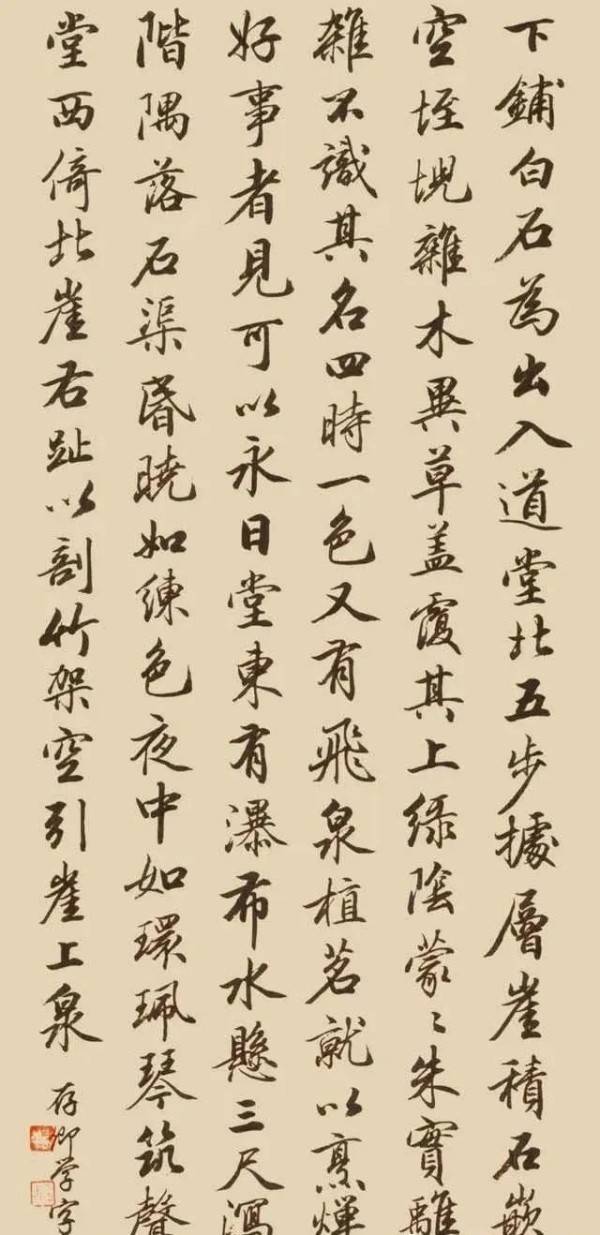 下鋪白石為出入道堂北五步據層崖積石嵌
空垤堄雜木異草盖覆其上綠陰蒙〻朱實離
雜不識其名四時一色又有飛泉植茗就以烹燀
好事者見可以永日堂東有瀑布水懸三尺瀉
階隅落石渠昏曉如練色夜中如環珮琴筑聲
堂西倚北崖右趾以剖竹架空引崖上泉
存卿学字